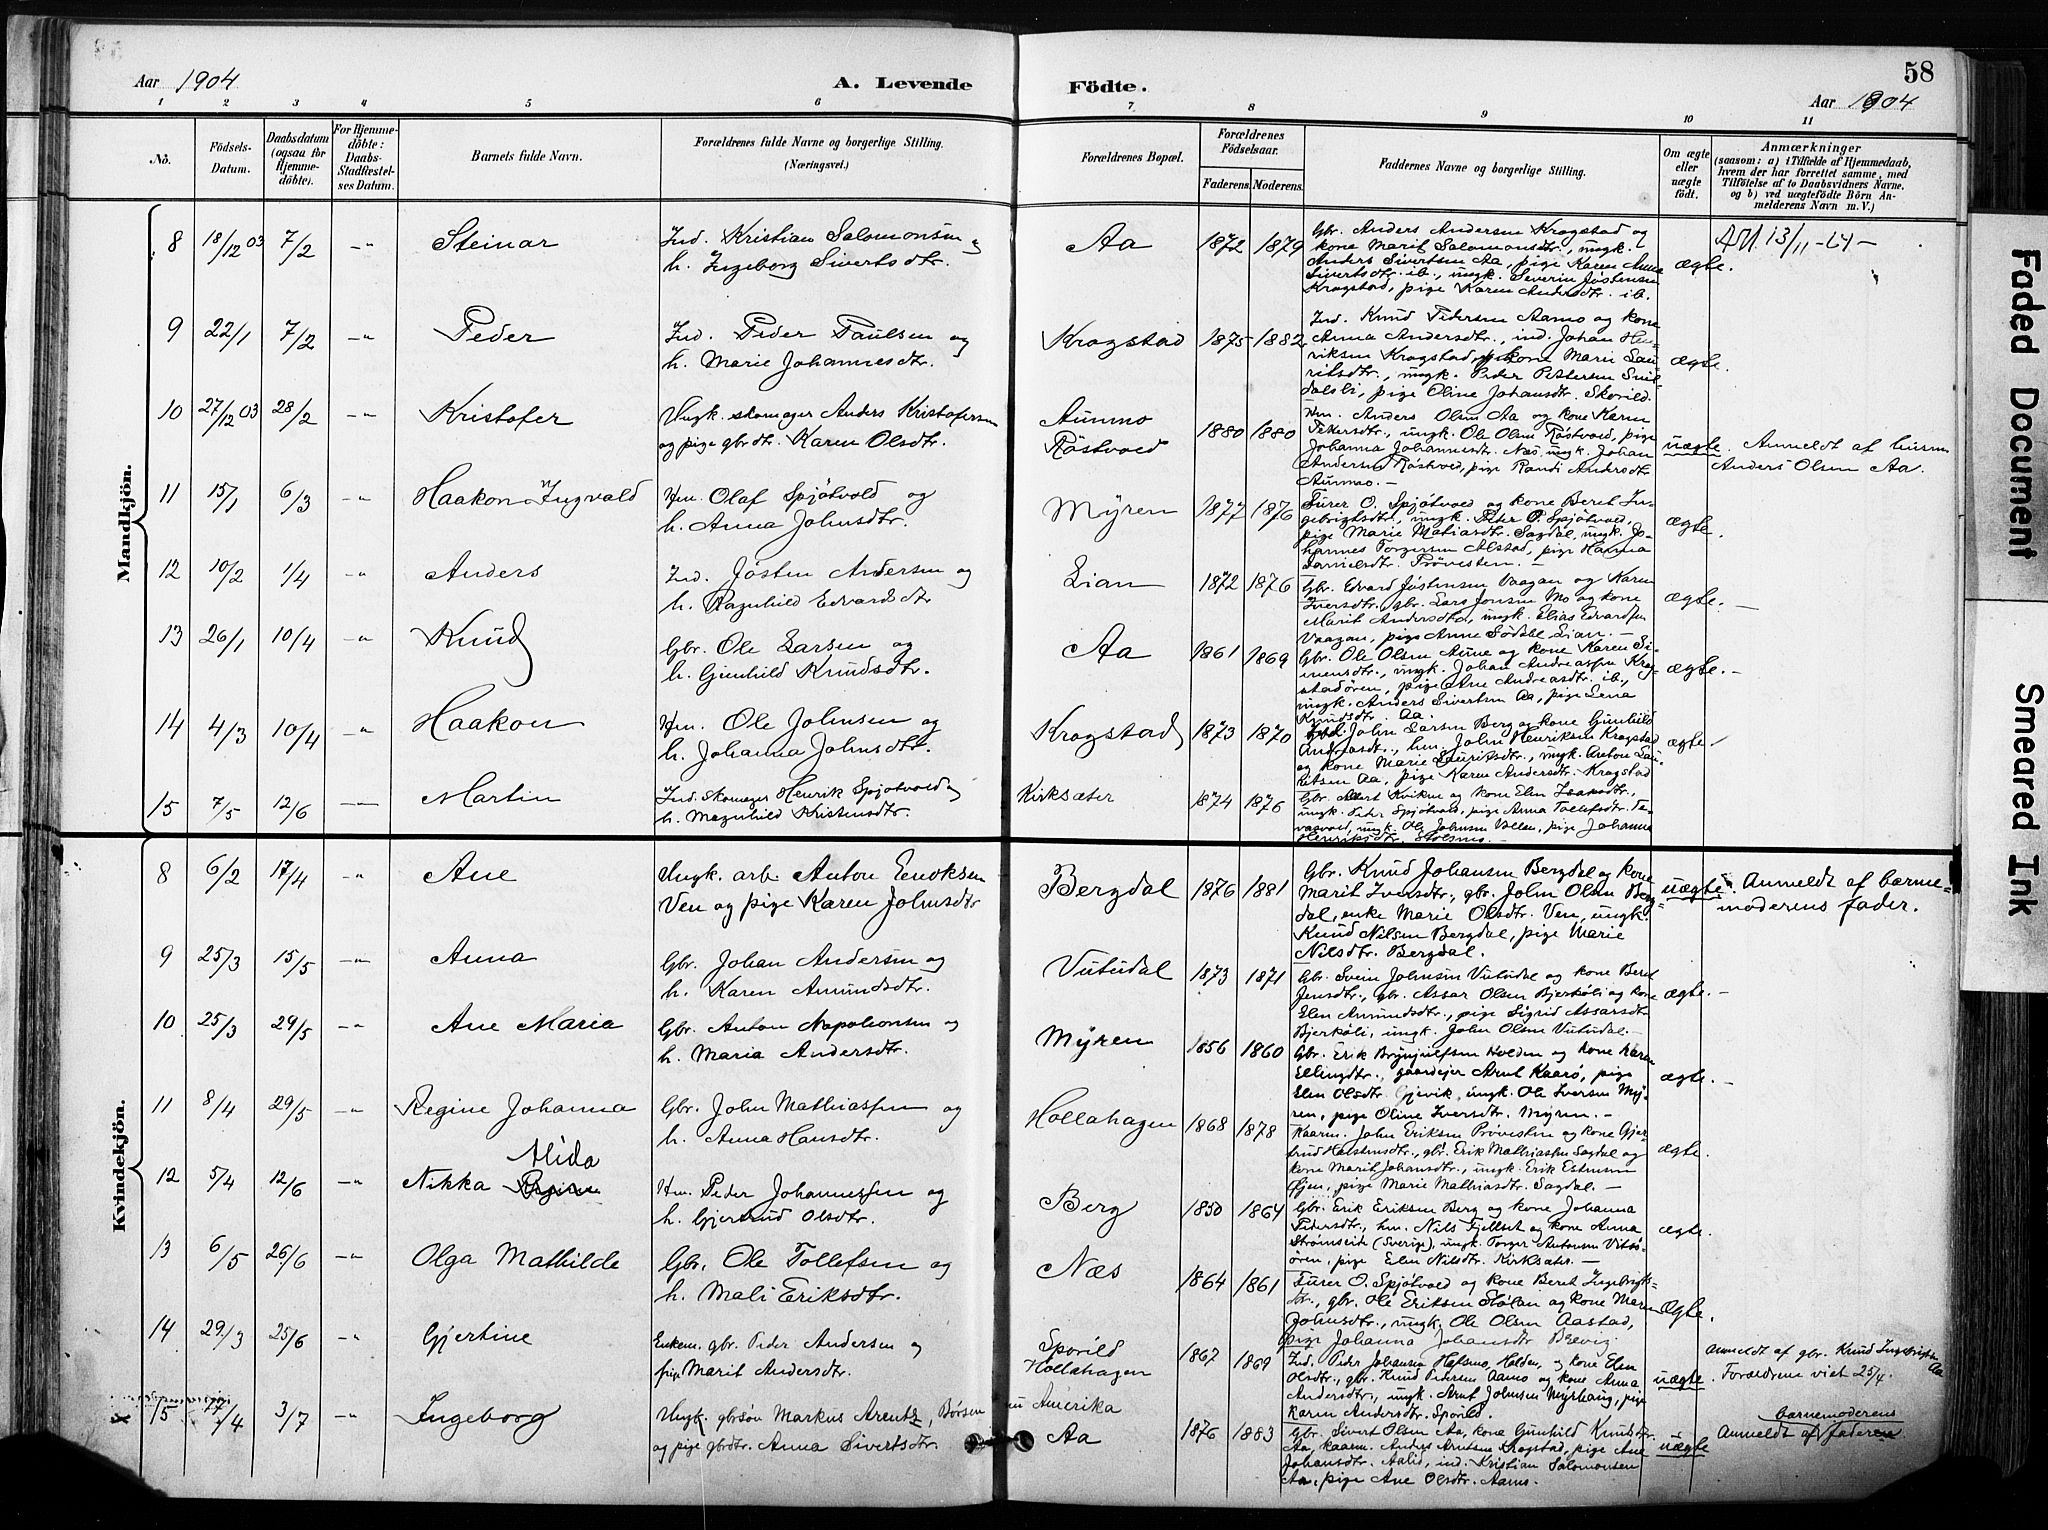 58
Aar 1904
A. Levende
Födte.
Aar 1904
1 2 3 4 5 6 7 8 9 10 11
No.
Födsels-Datum.
Daabsdatum (ogsaa for Hjemmedöbte).
For Hjemmedöbte: Daabs-Stadfæstelses Datum.
Barnets fulde Navn.
Forældrenes fulde Navne og borgerlige Stilling.
(Næringsvei.)
Forældrenes Bopæl.
Forældrenes Födselsaar.
Faderens. Moderens.
Faddernes Navne og borgerlige Stilling.
Om ægte eller uægte födt.
Anmærkninger
(saasom: a) i Tilfælde af Hjemmedaab,
hvem der har forrettet samme, med
Tilföielse af to Daabsvidners Navne,
og b) ved uægtefödte Börn Anmelderens Navn m. V.)
Mandkjön.
8 18/12 03 7/2 -"- Steinar
Ind. Kristian Salomonsen og
h. Ingeborg Sivertsdtr.
Aa 1872 1879
Gbr. Anders Andersen Krogstad og
kone Marit Salomonsdtr., ungk.
Anders Sivertsen Aa, pige Karen Anna
Sivertsdtr. ib., ungk. Severin Jöstensen
Krogstad, pige Karen Andersdtr. ib.
ægte.
13/11-64-
9 22/1 7/2 -"- Peder
Ind. Peder Paulsen og
h. Marie Johannesdtr.
Krogstad 1875 1882
Ind. Knud Pedersen Aamo og kone
Anna Andersdtr., ind. Johan Hen-
riksen Krogstad, kone Marie Lau-
ritsdtr., ungk. Peder Pettersen
pige Oline Johansdtr. Skorild.
ægte.
10 27/12 03 28/2 -"- Kristofer
Ungk. skomager Anders Kristofersen
og pige gbrdtr. Karen Olsdtr.
Aunmo
Röstvoed
1880 1880
Hm. Anders Olsen Aa og kone Karen
Pedersdtr., ungk. Ole Olsen Röstvoed, pige
Johanna Johannesdtr. Næs, ungk. Johan
Andersen Röstvoed, pige Randi Andersdtr
Aunmo.-
uægte. Anmeldt af huusm
Anders Olsen Aa.
11 15/1 6/3 -"- Haakon Ingvald
Hm. Olaf Spjötvold og
h. Anna Johnsdtr.
Myren 1877 1876
Furer O. Spjötvoed og kone Beret In-
gebrigtsdtr., ungk. Peter P. Spjötvoed,
pige Marie Mathiasdtr. Sagdal, ungk. Jo-
hannes Torgersen Alstad, pige Hanna
Danielsdtr. Prövesten.-
ægte.
12 10/2 1/4 -"- Anders
Ind. Jösten Andersen og
h. Ragnhild Edvardsdtr
Lian 1872 1876
Gbr. Edvard Jöstensen Vaagan og Karen
Iversdtr., gbr. Lars Jonsen Mo og kone
Marit Andersdtr, ungk. Elias Edvardsen
Vaagan, pige Anne Södahl Lian.-
ægte.-
13 26/1 10/4 -"- Knud
Gbr. Ole Larsen og
h. Gunhild Knudsdtr.
Aa 1861 1869
Gbr. Ole Olsen Aune og kone Karen Si-
mensdtr., ungk. Johan Andreassen Krog-
stadören, pige Ane Andreasdtr. ib.,
ungk. Anders Sivertsen Aa, pige Lena
Knudsdtr. Aa.
ægte.-
14 4/3 10/4 -"- Haakon
Hm. Ole Johnsen og
h. Johanna Johnsdtr.
Krogstad 1873 1870
John Larsen Berg og kone Gunhild
Andreasdt., hm. John Henriksen Krogstad
og kone Marie Lauritsdtr., ungk. Anton Lau-
ritsen Aa, pige Karen Andersdtr. Krogstad
ægte.
15 7/5 12/6 Martin
Ind. skomager Henrik Spjotvold og
h. Magnhild Kristensdtr.
Kirksæter 1874 1876
Gbr. Kviken og kone Elen Isaksdtr.,
ungk. Peter Spjötvold, pige Anna Tollefsdtr.
ungk. Ole Johnsen Vollen, pige Johanna
Henriksdtr. Stolsmo.-
Kvindekjön.
8 6/2 17/4 -"- Ane
Ungk. arb. Anton Enoksen
Ven og pige Karen Johnsdtr
Bergdal 1876 1881
Gbr. Knud Johansen Bergdal og kone
Marit Iversdtr., gbr. John Olsen Berg-
dal, enke Marie Olsdtr. Ven, ungk.
Knud Nilsen Bergdal, pige Marie
Nilsdtr. Bergdal.
uægte. Anmeldt af barne-
moderens fader.
9 25/3 15/5 -"- Anna
Gbr. Johan Andersen og
h. Karen Amundsdtr.
Vutudal 1873 1871
Gbr. Svein Johnsen Vutudal og kone Beret
Jensdtr., gbr. Assar Olsen Bjerköli og kone
Elen Amundsdtr., pige Sigrid Assarsdtr
Bjerköli, ungk. John Olsen Vutudal.-
ægte.-
10 25/3 29/5 -"- Ane Maria
Gbr. Anton Napoleonsen og
h. Maria Andersdtr.
Myren 1856 1860
Gbr. Erik Brynjulfsen Holden og kone Karen
Ellingdtr., gaardejer Arnt Kaarö, pige
Elen Olsdtr. Gjevik, ungk. Ole Iversen My-
ren, pige Oline Iversdtr. Myren.-
ægte.-
11 8/4 29/5 -"- Regine Johanna
Gbr. John Mathiassen og
h. Anna Hansdtr.
Hollahagen 1868 1878
Kaarm. John Eriksen Prövesten og kone Gjer-
trud Halstensdtr., gbr. Erik Mathiassen Sagdal og
kone Marit Johansdtr., ungk. Erik Estensen
Öyen, pige Marie Mathiasdtr. Sagdal.-
ægte.
12 5/4 12/6 -"- Nikka Alida
Hm. Peder Johannessen og
h. Gjertrud Olsdtr.
Berg 1850 1864
Gbr. Erik Eriksen Berg og kone Johanna
Pedersdtr., hm. Nils Fjellset og kone Anna
Strömseide (Sverige), ungk. Torger Antonsen Vitsö-
ören, pige Elen Nilsdtr. Kirksæter.-
ægte.
13 6/5 26/6 -"- Olga Mathilde
Gbr. Ole Tollefsen og
h. Mali Eriksdtr.
Næs 1864 1861
Furer O. Spjötvoed og kone Beret Ingebrigts-
dtr., gbr. Ole Eriksen Stölan og kone Maren
Johnsdtr., ungk. Ole Olsen Aastad,
pige Johanna Johansdtr Brevig.
ægte.
14 29/3 25/6 -"- Gjertine
Enkem. gbr. Peder Andersen og
pige Marit Andersdtr.
Sporild
Hollahagen
1867 1869
Ind. Peder Johansen Hafsmo, Holden, og kone Elen
Olsdtr., gbr. Knud Pedersen Aamo og kone Anna
Andersdtr., ungk. Arnt Johnsen Myrhaug, pige
Karen Andersdtr. Sporild.
uægte. Anmeldt af gbr. Knud Ingebrigtsen Aa
Forældrene viet 25/4.
x 15 17/4 3/7 -"- Ingeborg
Ungk. gbrsön Markus Arentz, Börsen
og pige gbrdtr. Anna Sivertsdtr.
Amerika
Aa
1876 1883
Gbr. Sivert Olsen Aa, kone Gunhild Knudsdtr.
Aa, kaarm. Anders Arntsen Krogstad, pige Ane
Johansdtr. Aalid, ind. Kristian Salomonsen
Aa, pige Ane Olsdtr. Aamo.
uægte
Anmeldt af barnemoderens fader
Faded Document Smeared Ink